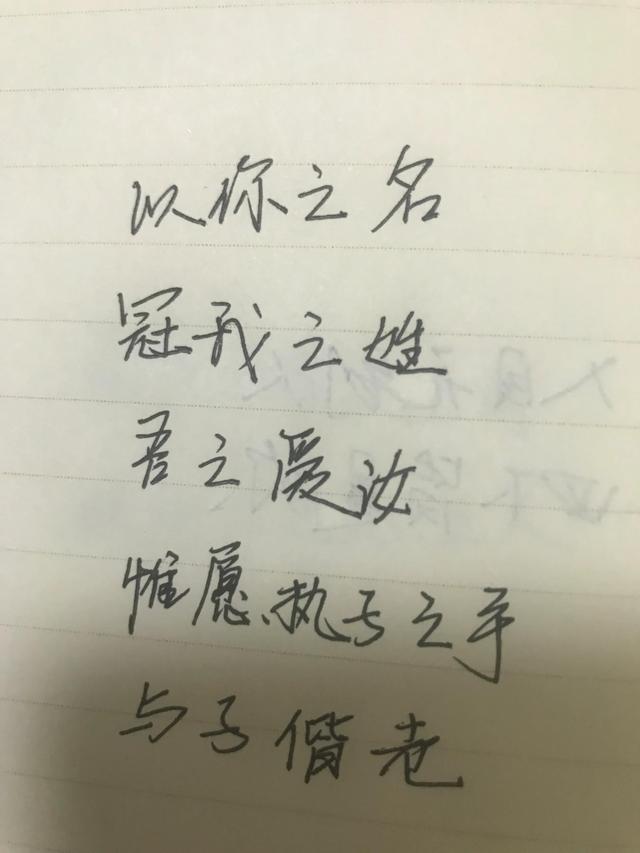 以你之名
冠我之姓
吾之爱汝
惟愿执子之手
与子偕老